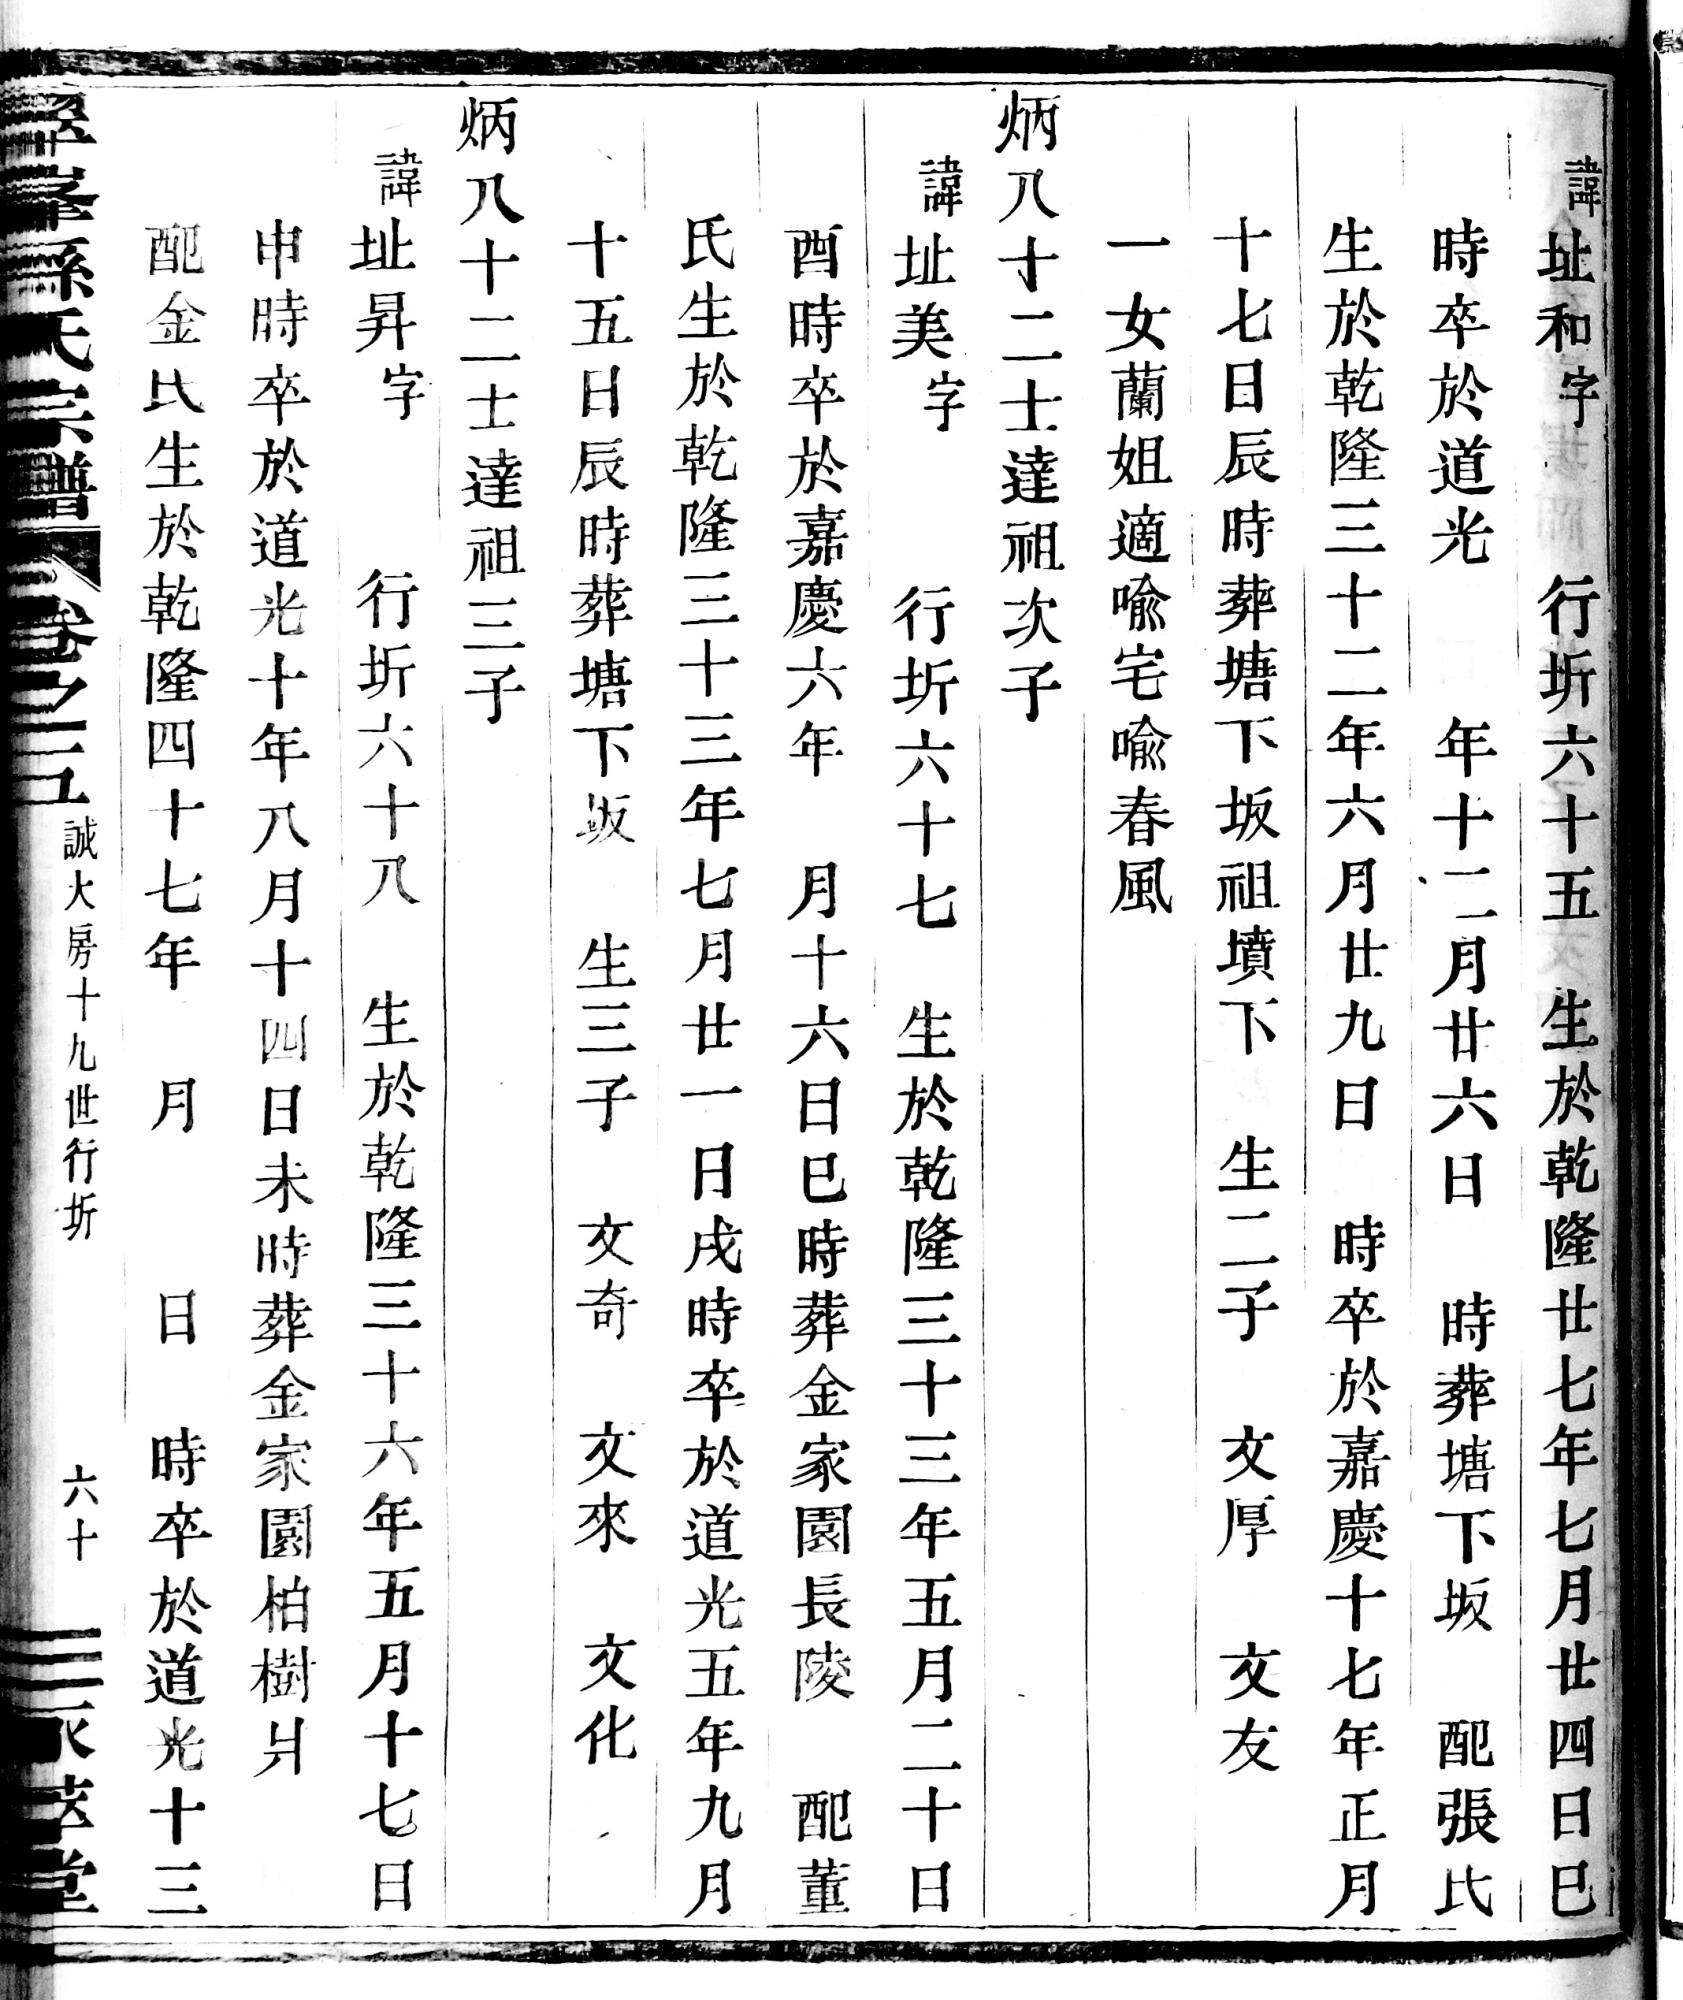 諱址和字　行圻六十五　生於乾隆廿七年七月廿四日巳
時卒於道光　年十二月廿六日　時葬塘下坂　配張氏
生於乾隆三十二年六月廿九日　時卒於嘉慶十七年正月
十七日辰時葬塘下坂祖墳下　生二子　文厚　文友
一女蘭姐適喩宅喩春風
炳八十二士達祖次子
諱址美字　行圻六十七　生於乾隆三十三年五月二十日
酉時卒於嘉慶六年　月十六日巳時葬金家園長陵　配董
氏生於乾隆三十三年七月廿一日戌時卒於道光五年九月
十五日辰時葬塘下坂　生三子　文奇　文來　文化
炳八十二士達祖三子
諱址昇字　行圻六十八　生於乾隆三十六年五月十七日
申時卒於道光十年八月十四日未時葬金家園柏樹爿
配金氏生於乾隆四十七年　月　日　時卒於道光十三
孫氏宗譜　卷之三　誠大房十九世行圻　六十　萃堂